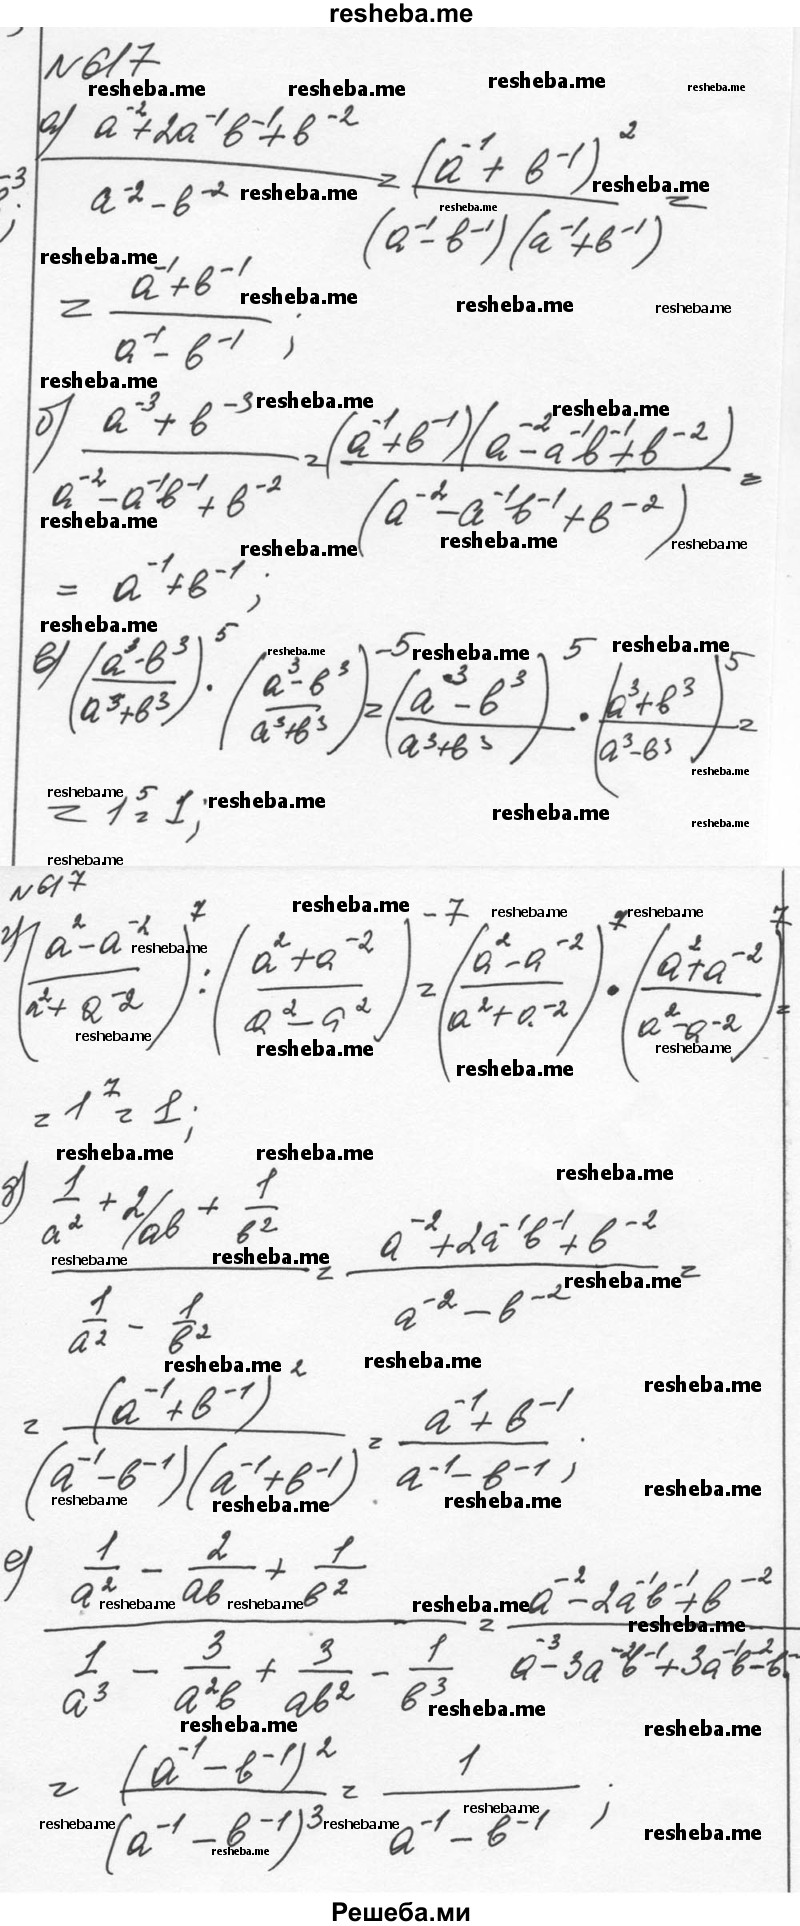 resheba.me
№617
а) (a⁻² + 2a⁻¹b⁻¹ + b⁻²) / (a⁻² - b⁻²) = (a⁻¹ + b⁻¹)² / ((a⁻¹ - b⁻¹)(a⁻¹ + b⁻¹)) =
= (a⁻¹ + b⁻¹) / (a⁻¹ - b⁻¹) ;
б) (a⁻³ + b⁻³) / (a⁻² - a⁻¹b⁻¹ + b⁻²) = (a⁻¹ + b⁻¹)(a⁻² - a⁻¹b⁻¹ + b⁻²) / (a⁻² - a⁻¹b⁻¹ + b⁻²) =
= a⁻¹ + b⁻¹ ;
в) ((a³ - b³) / (a³ + b³))⁵ · ((a³ - b³) / (a³ + b³))⁻⁵ = ((a³ - b³) / (a³ + b³))⁵ · ((a³ + b³) / (a³ - b³))⁵ =
= 1⁵ = 1 ;
№617
г) ((a² - a⁻²) / (a² + a⁻²))⁷ : ((a² + a⁻²) / (a² - a²))⁻⁷ = ((a² - a⁻²) / (a² + a⁻²))⁷ · ((a² + a⁻²) / (a² - a⁻²))⁷ =
= 1⁷ = 1 ;
д) (1/a² + 2/ab + 1/b²) / (1/a² - 1/b²) = (a⁻² + 2a⁻¹b⁻¹ + b⁻²) / (a⁻² - b⁻²) =
= (a⁻¹ + b⁻¹)² / ((a⁻¹ - b⁻¹)(a⁻¹ + b⁻¹)) = (a⁻¹ + b⁻¹) / (a⁻¹ - b⁻¹) ;
е) (1/a² - 2/ab + 1/b²) / (1/a³ - 3/a²b + 3/ab² - 1/b³) = (a⁻² - 2a⁻¹b⁻¹ + b⁻²) / (a⁻³ - 3a⁻²b⁻¹ + 3a⁻¹b⁻² - b⁻
= (a⁻¹ - b⁻¹)² / (a⁻¹ - b⁻¹)³ = 1 / (a⁻¹ - b⁻¹) ;
Решеба.ми